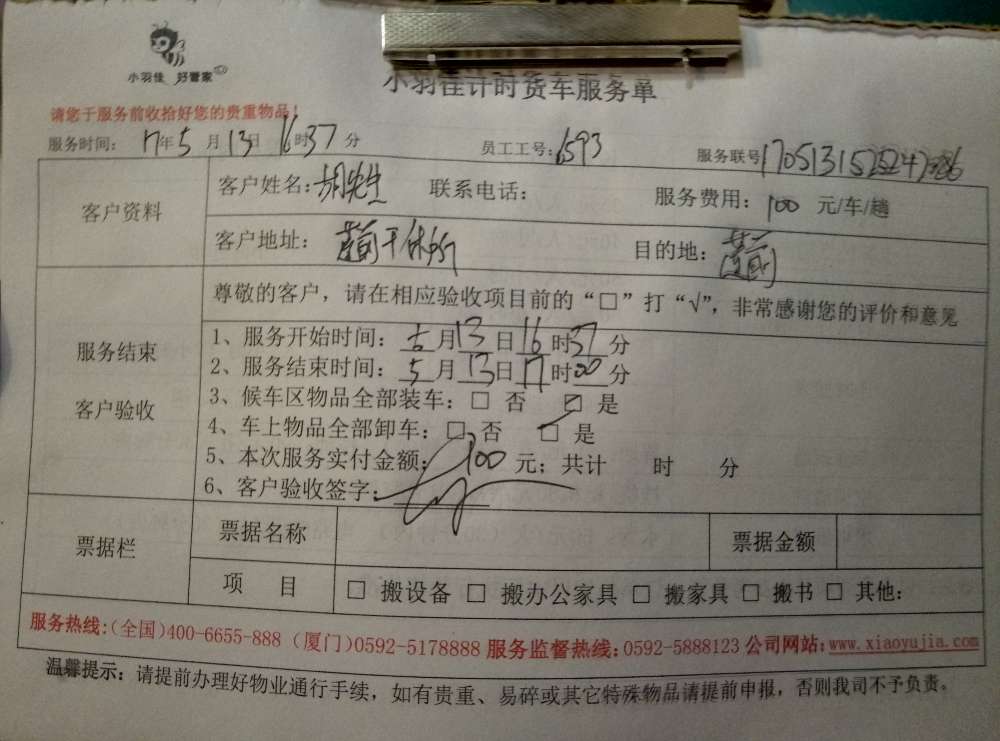 小羽佳 好管家
小羽佳计时货车服务单
请您于服务前收拾好您的贵重物品！
服务时间： 17年5月13日16时37分 员工工号：1593 服务联号
客户资料
客户姓名：胡先生 联系电话： 服务费用：100 元/车/趟
客户地址：莲前干休所 目的地：莲前
服务结束
客户验收
尊敬的客户，请在相应验收项目前的“□”打“√”，非常感谢您的评价和意见
1、服务开始时间：5月13日16时37分
2、服务结束时间：5月13日17时00分
3、候车区物品全部装车：□ 否 ☑ 是
4、车上物品全部卸车：□ 否 ☑ 是
5、本次服务实付金额：100元；共计 时 分
6、客户验收签字：
票据栏
票据名称 票据金额
项 目 □ 搬设备 □ 搬办公家具 □ 搬家具 □ 搬书 □ 其他：
服务热线:(全国)400-6655-888 (厦门)0592-5178888 服务监督热线:0592-5888123 公司网站:www.xiaoyujia.com
温馨提示：请提前办理好物业通行手续，如有贵重、易碎或其它特殊物品请提前申报，否则我司不予负责。